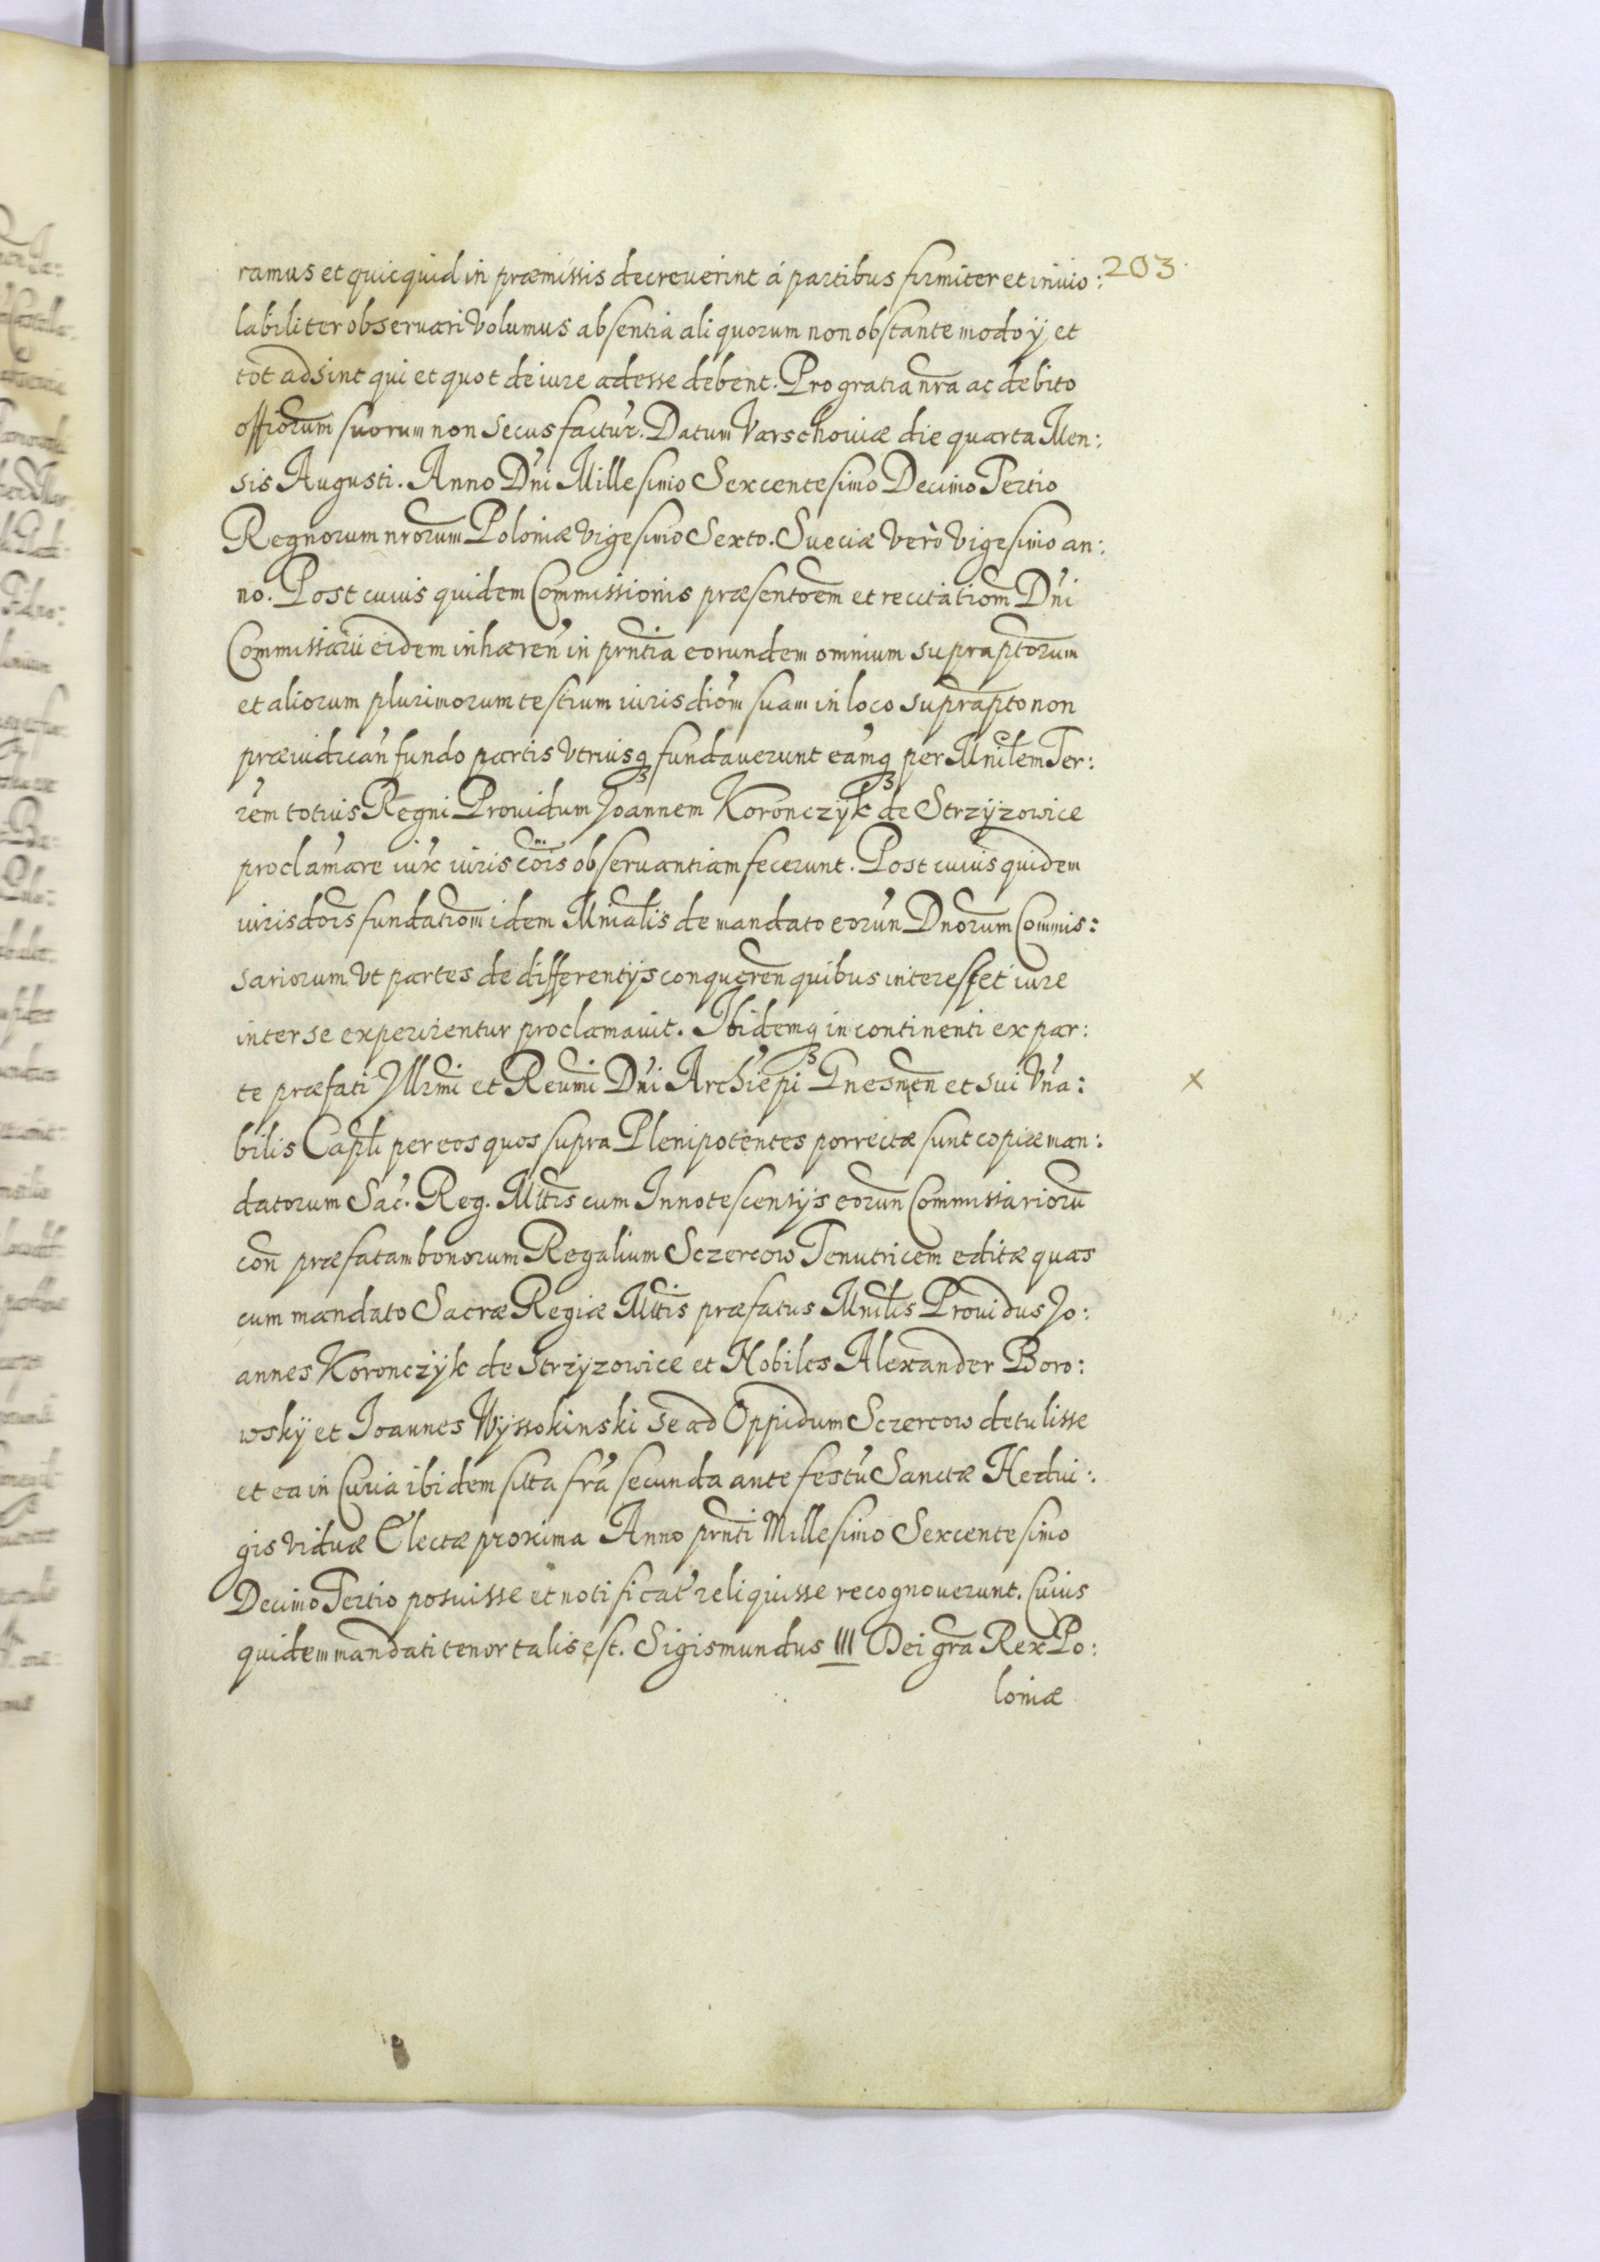 203
ramus et quicquid in præmissis decreverint á partibus firmiter et invio:
labiliter observari volumus absentia aliquorum non obstante modo ÿ et
tot adsint qui et quot de iure adesse debent. Pro gratia nr̃a ac debito
offiorum suorum non secus factur̃. Datum Varschoviæ die quarta Men:
sis Augusti. Anno Dñi Millesimo Sexcentesimo Decimo Tertio
Regnorum nrorum Poloniæ Vigesimo Sexto. Sueciæ Verò Vigesimo an:
no. Post cuius quidem Commissionis præsentoem et recitatiom Dñi
Commissarii eidem inhæreñ in prntia eorundem omnium supraptorum
et aliorum plurimorum testium iurisdiom̃ suam in loco suprapto non
præiudicañ fundo partis Utriusq3 fundaverunt eam̃q3 per Mnilem Ter:
rem totius Regni Providum Joannem Koronczÿk de Strzÿzowice
proclamare iurẽ iuris cõis observantiam fecerunt. Post cuius quidem
iurisdois fundatiom idem Mnialis de mandato eoruñ Dnorum Commis:
sariorum Ut partes de differentÿs conqueren quibus interesset iure
inter se experirentur proclamavit. Ibidemq3 in continenti ex par:
te præfati Illrmi et Reumi Dñi Archiepĩ Gnesnen et sui Vña:
bilis Capli per eos quos supra Plenipotentes porrectæ sunt copiæ man:
datorum Sac̃. Reg. Mttis cum Innotescentÿs eorun Commissarioru
con præfatam bonorum Regalium Sczercow Tenutricem editæ quas
cum mandato Sacræ Regiæ Mttis præfatus Mnilis Providus Jo:
annes Koronczÿk de Strzÿzowice et Nobiles Alexander Boro:
wskÿ et Joannes Wÿssokinski se ad Oppidum Sczercow detulisse
et ea in Curia ibidem sita fr̃a secunda ante festũ Sanctæ Hedui:
gis Viduæ Electæ proxima Anno prnti Millesimo Sexcentesimo
Decimo Tertio posuisse et notificat̃ reliquisse recognoverunt. Cuius
quidem mandati tenor talis est. Sigismundus III Dei gr̃a Rex Po:
loniæ
x